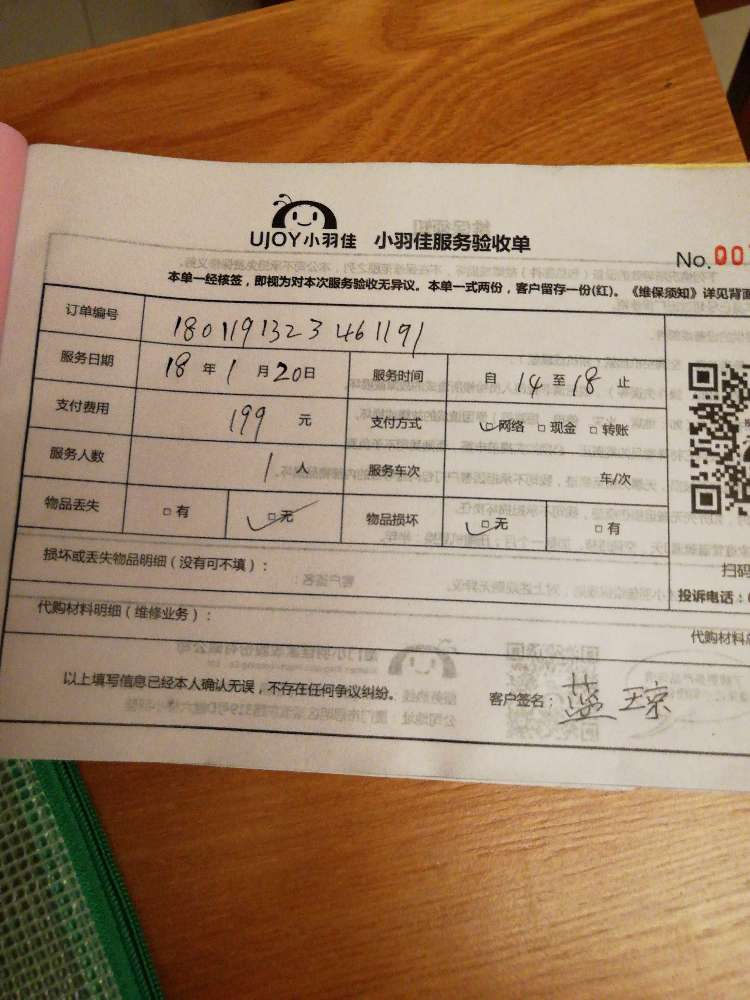 UJOY小羽佳 小羽佳服务验收单
No.00
本单一经核签，即视为对本次服务验收无异议。本单一式两份，客户留存一份(红)。《维保须知》详见背面
订单编号 180119132346 1191
服务日期 18 年 1 月 20 日 服务时间 自 14 至 18 止
支付费用 199 元 支付方式 ☑网络 □现金 □转账
服务人数 1 人 服务车次 车/次
物品丢失 □有 ☑无 物品损坏 ☑无 □有
损坏或丢失物品明细（没有可不填）：
扫码
投诉电话：
代购材料明细（维修业务）：
代购材料总
以上填写信息已经本人确认无误，不存在任何争议纠纷。 客户签名：蓝琼